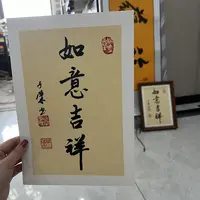 如意吉祥
如意吉祥